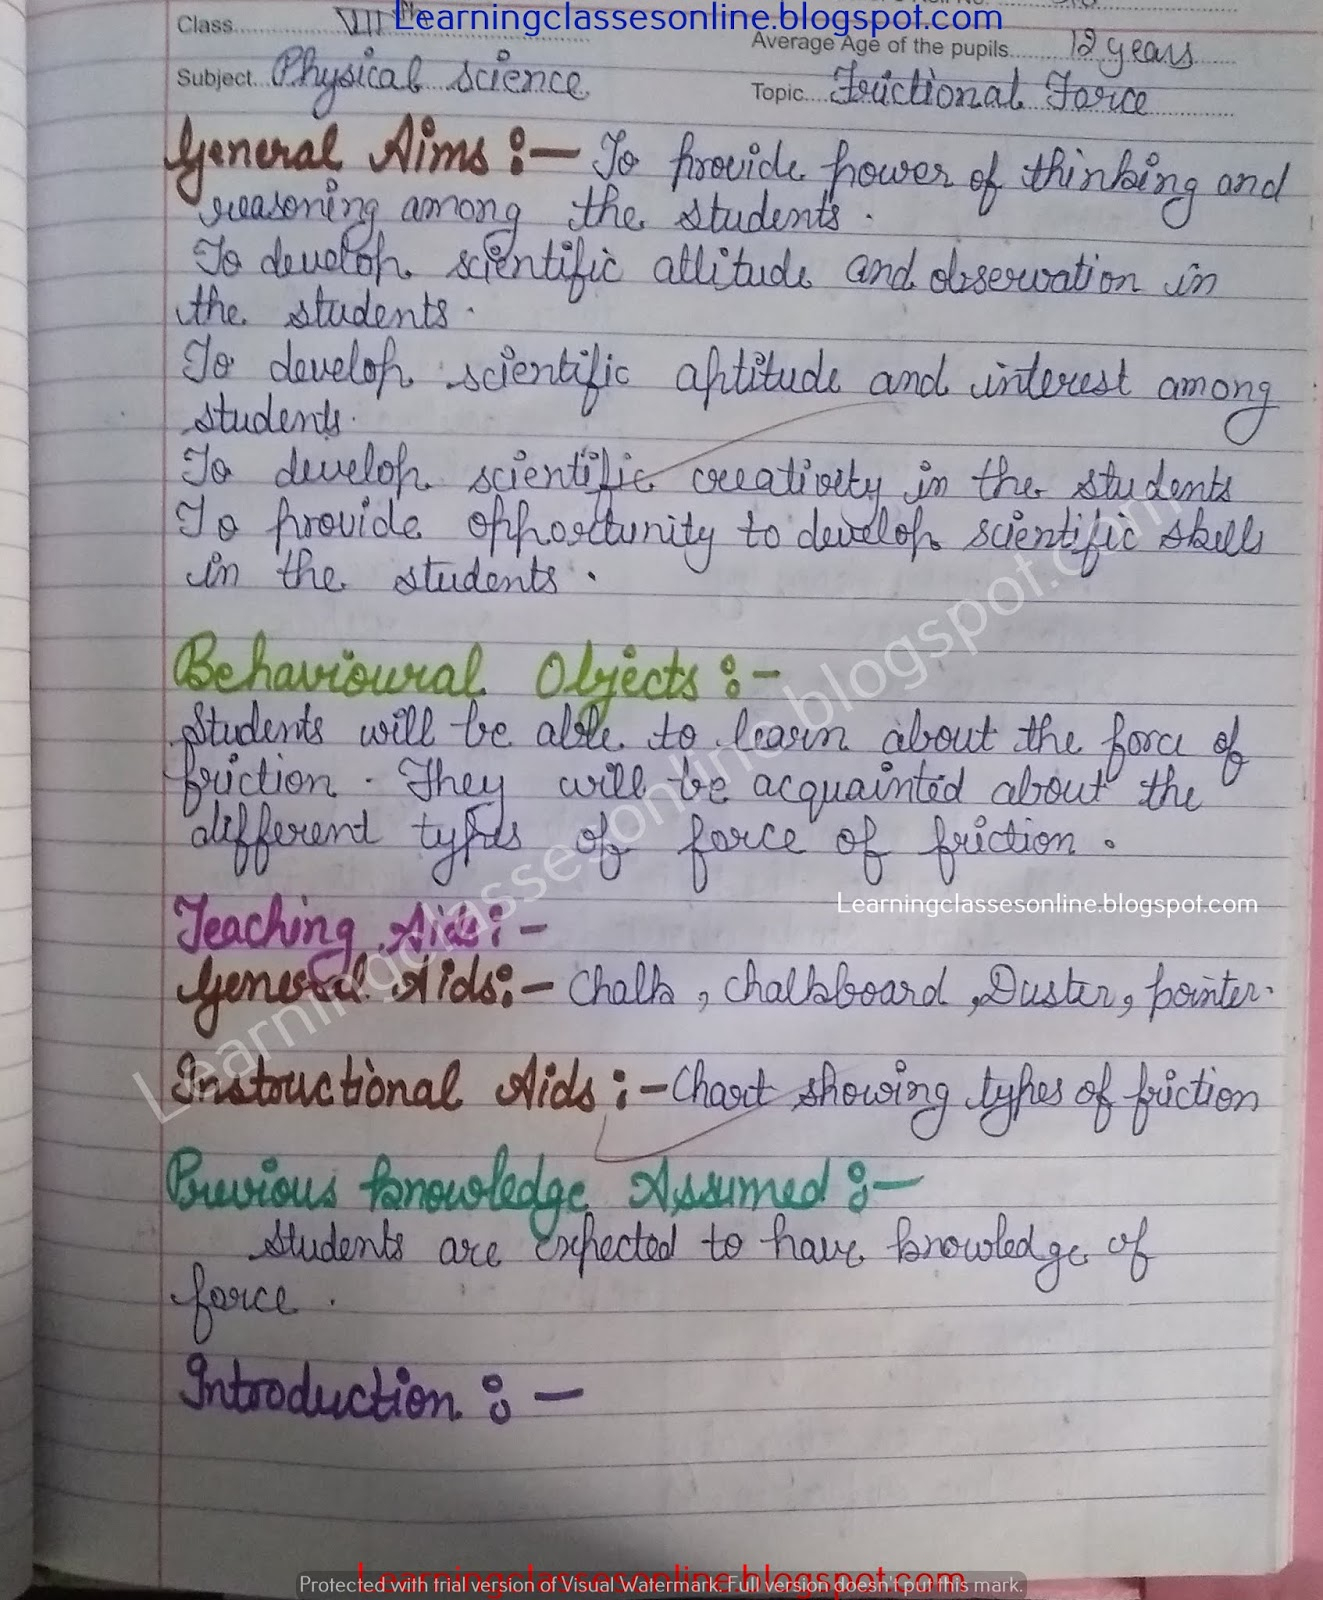 Learningclassesonline.blogspot.com
Class........VII th
Average Age of the pupils........12 years
Subject...Physical science
Topic....Frictional Force
General Aims :— To provide power of thinking and
reasoning among the students.
To develop scientific attitude and observation in
the students.
To develop scientific aptitude and interest among
students.
To develop scientific creativity in the students
To provide opportunity to develop scientific skills
in the students.
Behavioural Objects :-
Students will be able to learn about the force of
friction. They will be acquainted about the
different types of force of friction.
Learningclassesonline.blogspot.com
Learningclassesonline.blogspot.com
Teaching Aids :-
General Aids :- Chalk, chalkboard, Duster, pointer.
Instructional Aids :- Chart showing types of friction
Previous knowledge Assumed :-
Students are expected to have knowledge of
force.
Introduction :-
Learningclassesonline.blogspot.com
Protected with trial version of Visual Watermark. Full version doesn't put this mark.